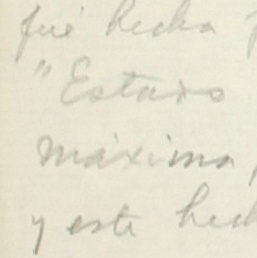 fué hecha
"Estuvo
máximo,
y este hech